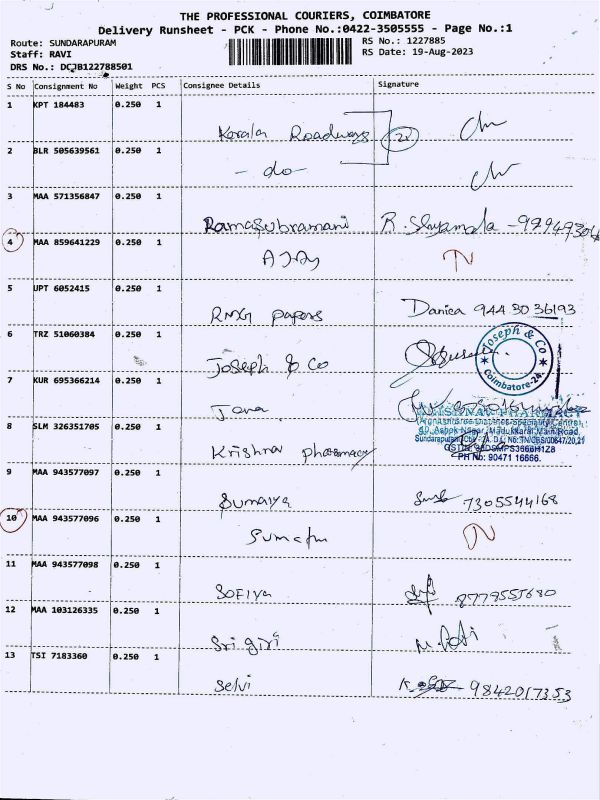 THE PROFESSIONAL COURIERS, COIMBATORE
Delivery Runsheet - PCK - Phone No.:0422-3505555 - Page No.:1
Route: SUNDARAPURAM
Staff: RAVI
DRS No.: DCJB122788501
RS No.: 1227885
RS Date: 19-Aug-2023
S No Consignment No Weight PCS Consignee Details Signature
1 KPT 184483 0.250 1
Kerala Roadways
2 BLR 505639561 0.250 1
- do -
3 MAA 571356847 0.250 1
Ramasubramani R. Shyamala
4 MAA 859641229 0.250 1
5 UPT 6052415 0.250 1
RMG papers Danica 944 30 36193
6 TRZ 51060384 0.250 1
Joseph & Co
Joseph & Co
Coimbatore-24.
7 KUR 695366214 0.250 1
Jana
8 SLM 326351705 0.250 1
Krishna pharmacy
PH No: 90471 16666.
9 MAA 943577097 0.250 1
Sumaiya 7305544168
10 MAA 943577096 0.250 1
11 MAA 943577098 0.250 1
SOFIya 8779555680
12 MAA 103126335 0.250 1
Sri giri
13 TSI 7183360 0.250 1
Selvi 9842017353